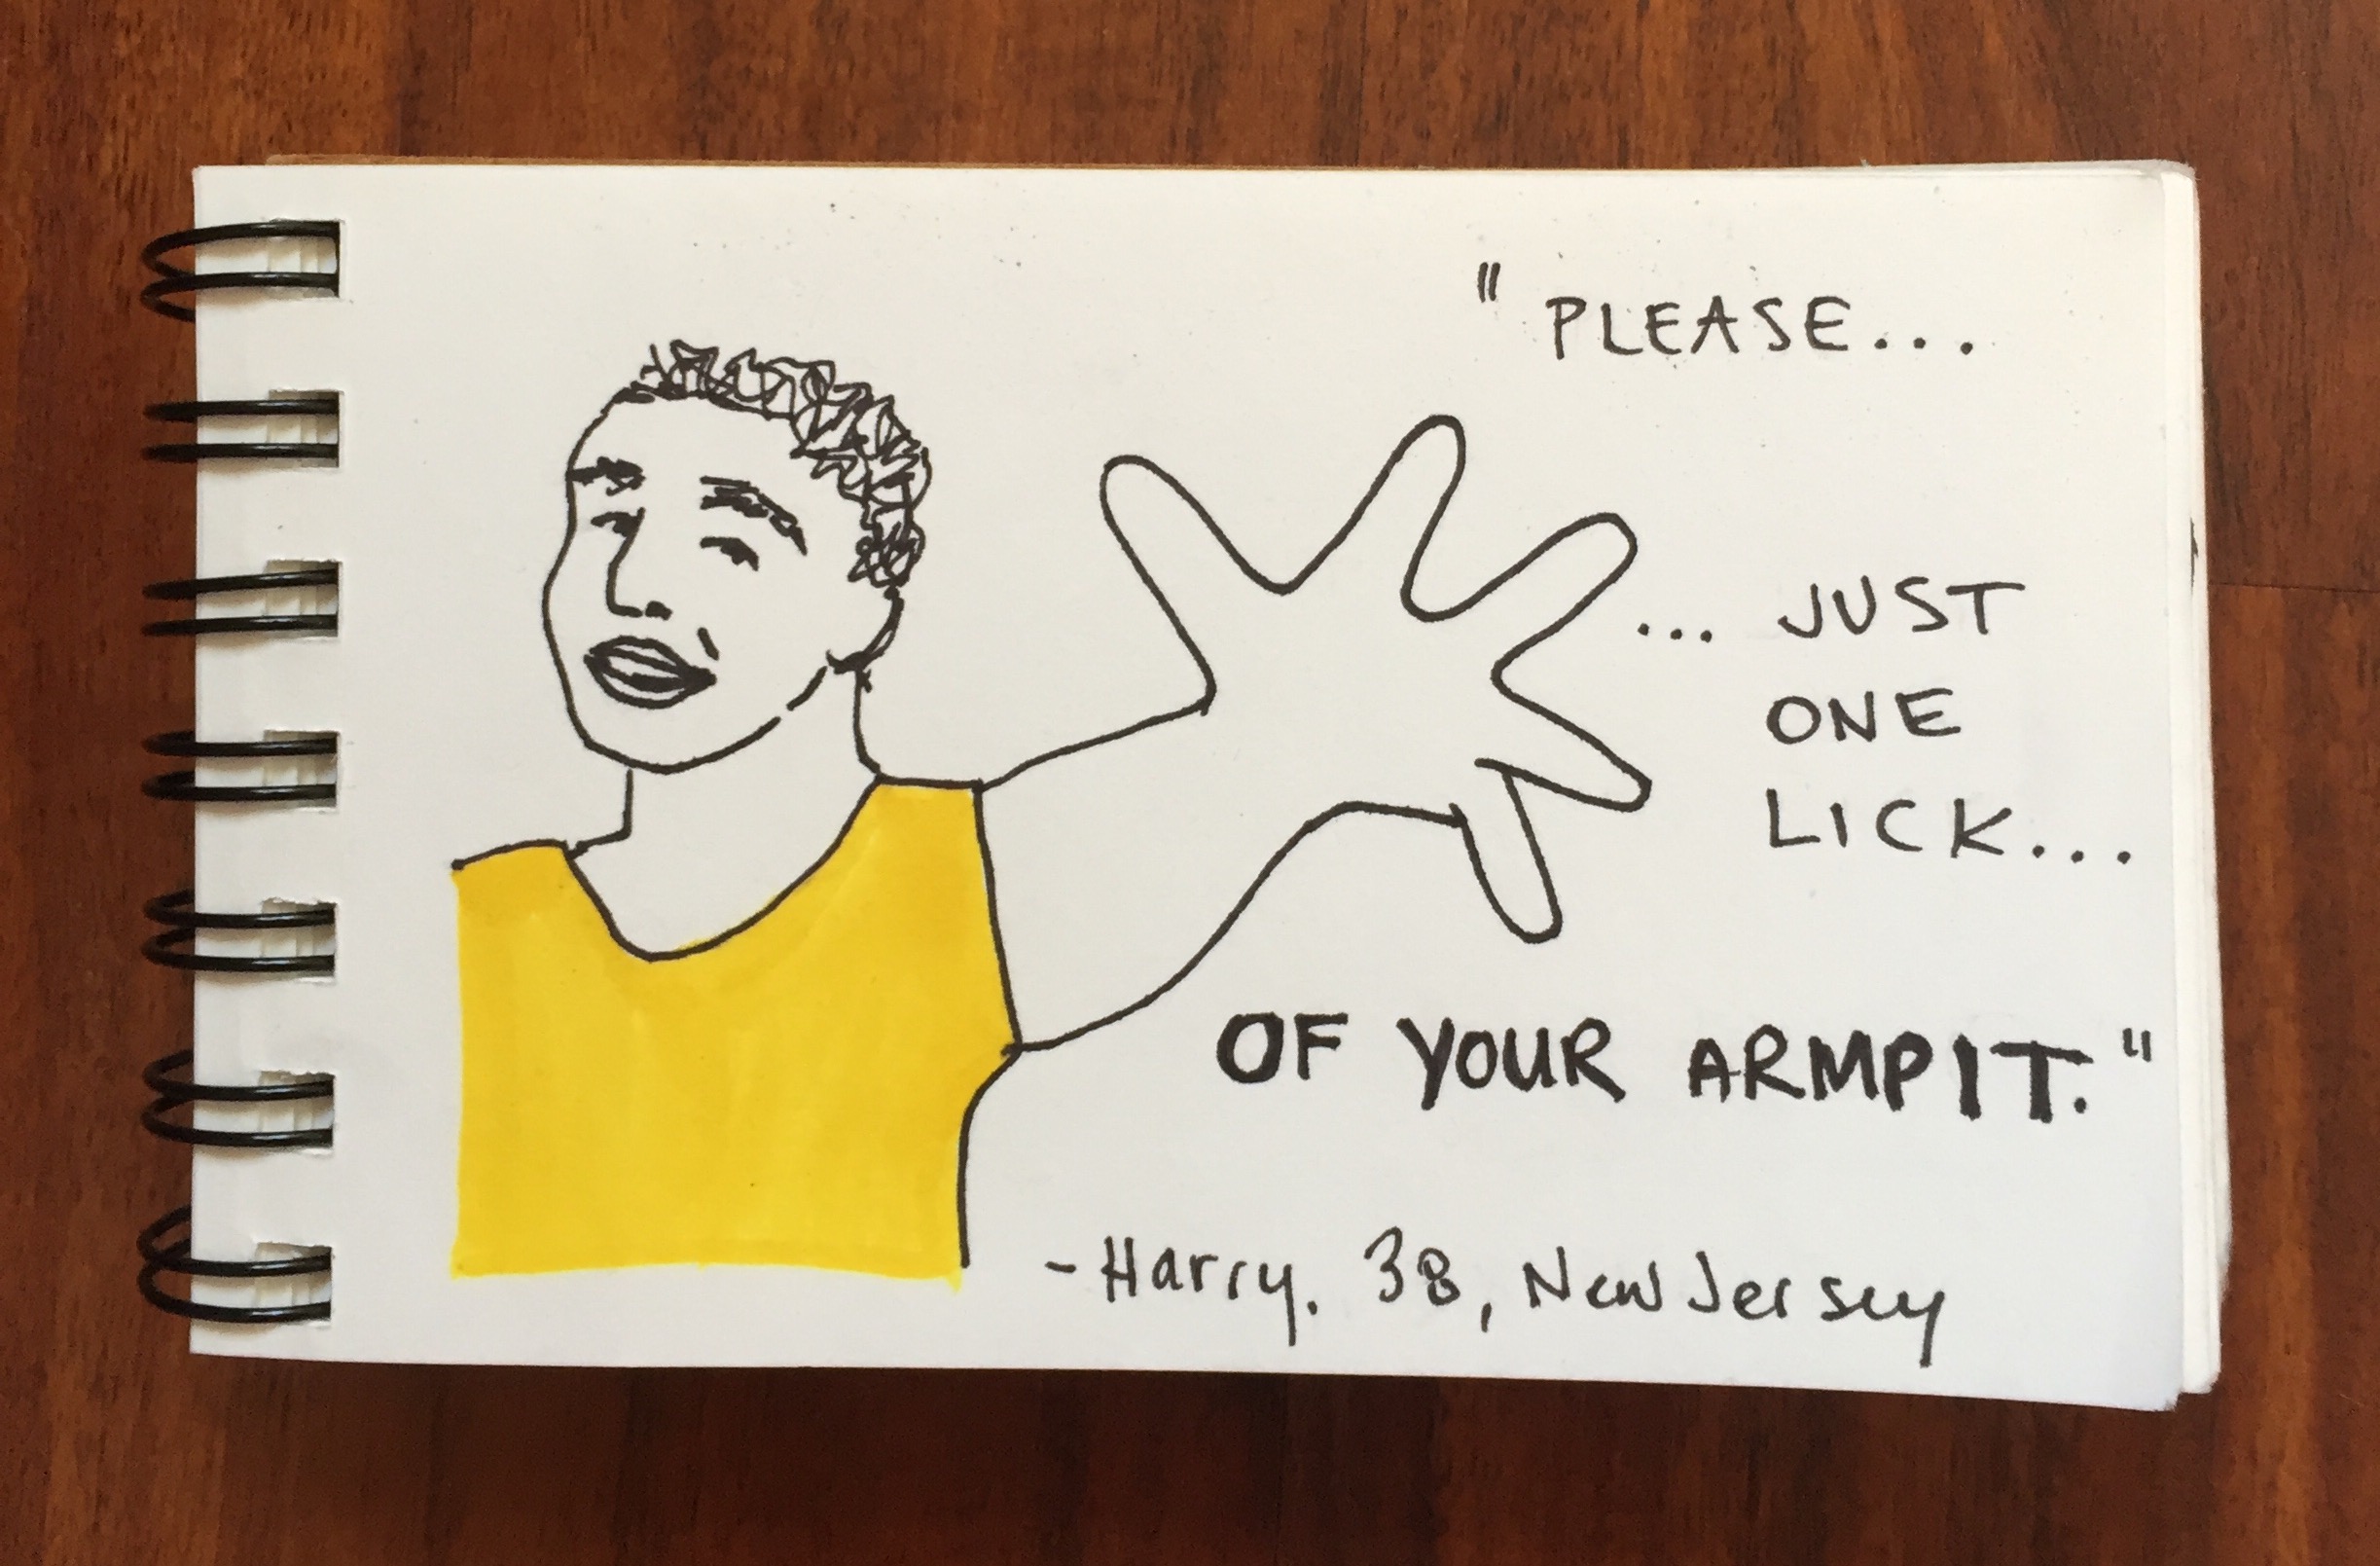 "PLEASE...
... JUST
ONE
LICK...
OF YOUR ARMPIT."
- Harry. 38, New Jersey